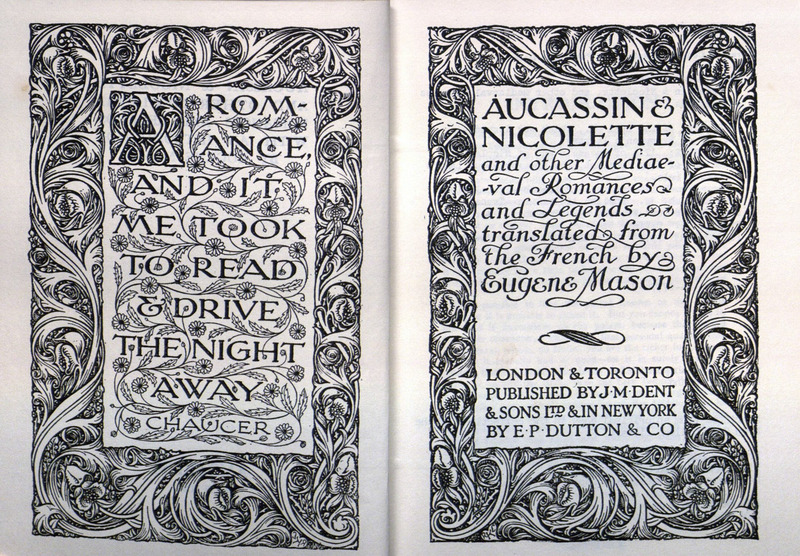 A ROM-
ANCE,
AND IT
ME TOOK
TO READ
& DRIVE
THE NIGHT
AWAY
CHAUCER
AUCASSIN &
NICOLETTE
and other Mediae-
-val Romances
and Legends
translated from
the French by
Eugene Mason
LONDON & TORONTO
PUBLISHED BY J·M·DENT
& SONS LTD & IN NEW YORK
BY E·P·DUTTON & CO